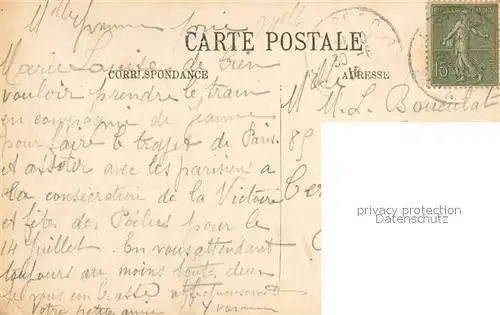 Mlle Yvonne prie
CARTE POSTALE
Marie Louise de bien
CORRESPONDANCE
ADRESSE
vouloir prendre le train
M. L.
en compagnie de Jeanne
pour faire le trajet de Paris
89
et assister avec les parisiens a
la consécration de la Victoire
et fêtes des Poilus pour le
14 Juillet. En vous attendant
toujours au moins toute deux
je vous embrasse affectueusement
Votre petite amie Yvonne
15
privacy protection
Datenschutz